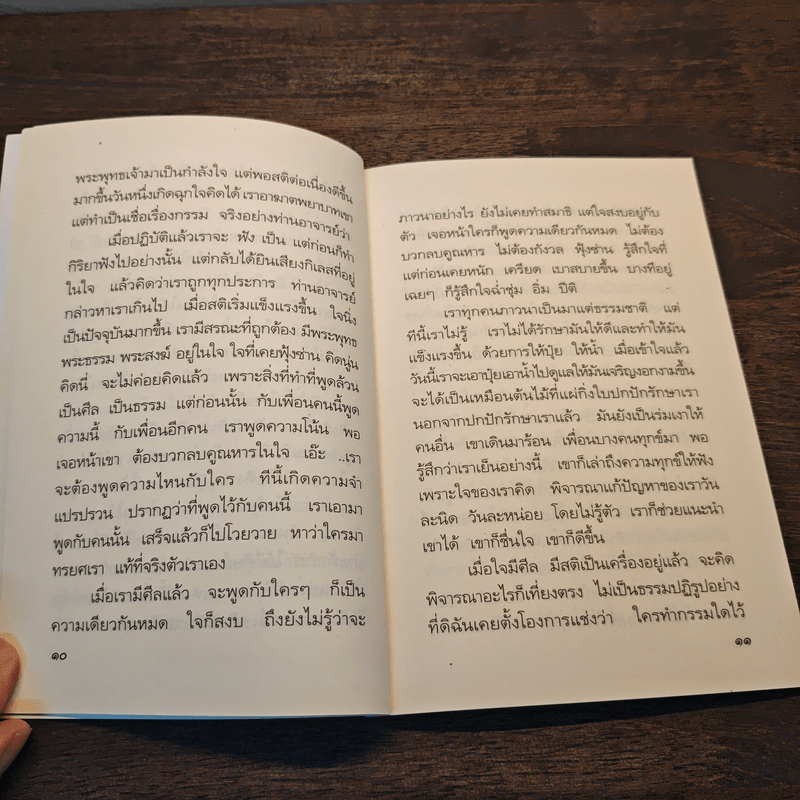 พระพุทธเจ้ามาเป็นกำลังใจ แต่พอสติต่อเนื่องดีขึ้น
มากขึ้นวันหนึ่งเกิดฉุกใจคิดได้ เราอาฆาตพยาบาทเขา
แต่ทำเป็นเชื่อเรื่องกรรม จริงอย่างท่านอาจารย์ว่า
เมื่อปฏิบัติแล้วเราจะ ฟัง เป็น แต่ก่อนก็ทำ
กิริยาฟังไปอย่างนั้น แต่กลับได้ยินเสียงกิเลสที่อยู่
ในใจ แล้วคิดว่าเราถูกทุกประการ ท่านอาจารย์
กล่าวหาเราเกินไป เมื่อสติเริ่มแข็งแรงขึ้น ใจนิ่ง
เป็นปัจจุบันมากขึ้น เรามีสรณะที่ถูกต้อง มีพระพุทธ
พระธรรม พระสงฆ์ อยู่ในใจ ใจที่เคยฟุ้งซ่าน คิดนู่น
คิดนี่ จะไม่ค่อยคิดแล้ว เพราะสิ่งที่ทำที่พูดล้วน
เป็นศีล เป็นธรรม แต่ก่อนนั้น กับเพื่อนคนนี้พูด
ความนี้ กับเพื่อนอีกคน เราพูดความโน้น พอ
เจอหน้าเขา ต้องบวกลบคูณหารในใจ เอ๊ะ ..เรา
จะต้องพูดความไหนกับใคร ทีนี้เกิดความจำ
แปรปรวน ปรากฏว่าที่พูดไว้กับคนนี้ เราเอามา
พูดกับคนนั้น เสร็จแล้วก็ไปโวยวาย หาว่าใครมา
ทรยศเรา แท้ที่จริงตัวเราเอง
เมื่อเรามีศีลแล้ว จะพูดกับใครๆ ก็เป็น
ความเดียวกันหมด ใจก็สงบ ถึงยังไม่รู้ว่าจะ
๑๐
ภาวนาอย่างไร ยังไม่เคยทำสมาธิ แต่ใจสงบอยู่กับ
ตัว เจอหน้าใครก็พูดความเดียวกันหมด ไม่ต้อง
บวกลบคูณหาร ไม่ต้องกังวล ฟุ้งซ่าน รู้สึกใจที่
แต่ก่อนเคยหนัก เครียด เบาสบายขึ้น บางทีอยู่
เฉยๆ ก็รู้สึกใจฉ่ำชุ่ม อิ่ม ปีติ
เราทุกคนภาวนาเป็นมาแต่ธรรมชาติ แต่
ทีนี้เราไม่รู้ เราไม่ได้รักษามันให้ดีและทำให้มัน
แข็งแรงขึ้น ด้วยการให้ปุ๋ย ให้น้ำ เมื่อเข้าใจแล้ว
วันนี้เราจะเอาปุ๋ยเอาน้ำไปดูแลให้มันเจริญงอกงามขึ้น
จะได้เป็นเหมือนต้นไม้ที่แผ่กิ่งใบปกปักรักษาเรา
นอกจากปกปักรักษาเราแล้ว มันยังเป็นร่มเงาให้
คนอื่น เขาเดินมาร้อน เพื่อนบางคนทุกข์มา พอ
รู้สึกว่าเราเย็นอย่างนี้ เขาก็เล่าถึงความทุกข์ให้ฟัง
เพราะใจของเราคิด พิจารณาแก้ปัญหาของเราวัน
ละนิด วันละหน่อย โดยไม่รู้ตัว เราก็ช่วยแนะนำ
เขาได้ เขาก็ชื่นใจ เขาก็ดีขึ้น
เมื่อใจมีศีล มีสติเป็นเครื่องอยู่แล้ว จะคิด
พิจารณาอะไรก็เที่ยงตรง ไม่เป็นธรรมปฏิรูปอย่าง
ที่ดิฉันเคยตั้งโองการแช่งว่า ใครทำกรรมใดไว้
๑๑